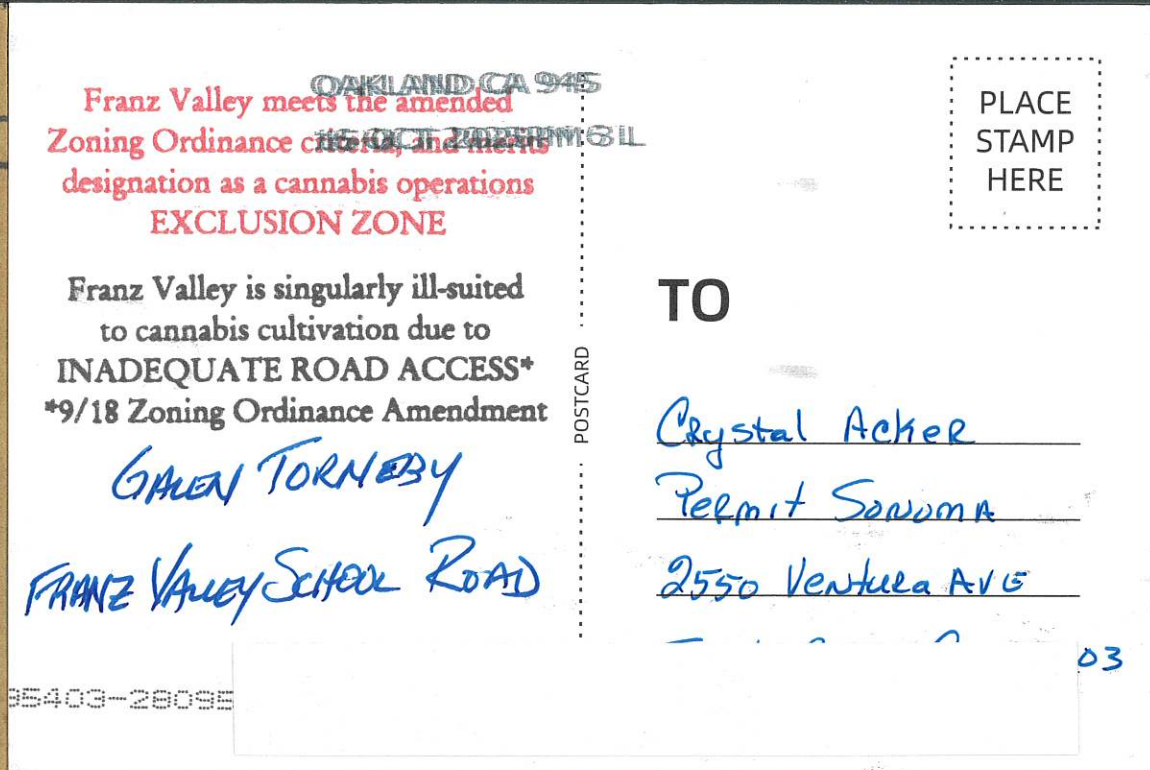 OAKLAND CA 945
Franz Valley meets the amended
Zoning Ordinance criteria, and merits
designation as a cannabis operations
EXCLUSION ZONE
Franz Valley is singularly ill-suited
to cannabis cultivation due to
INADEQUATE ROAD ACCESS*
*9/18 Zoning Ordinance Amendment
GALEN TORNEBY
FRANZ VALLEY SCHOOL ROAD
95403-28095
POSTCARD
PLACE
STAMP
HERE
TO
Crystal Acker
Permit Sonoma
2550 Ventura AVE
03